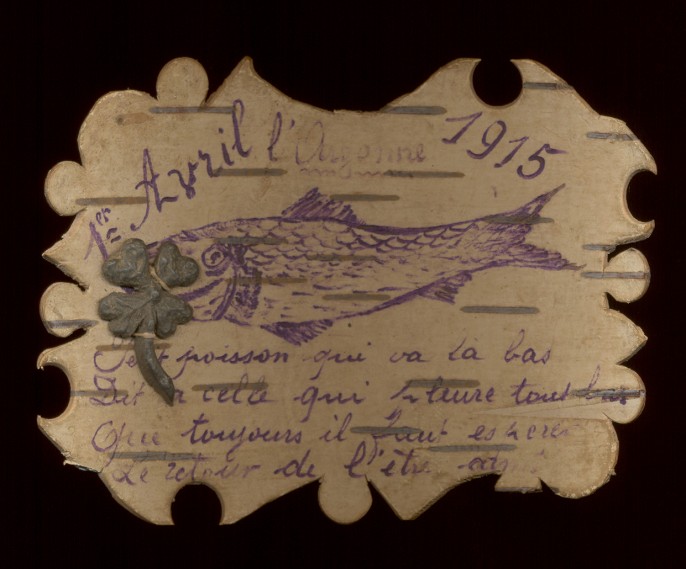 1er Avril l'Argonne 1915
Petit poisson qui va là bas
Dit à celle qui pleure tout bas
Que toujours il faut espérer
Le retour de l'être aimé